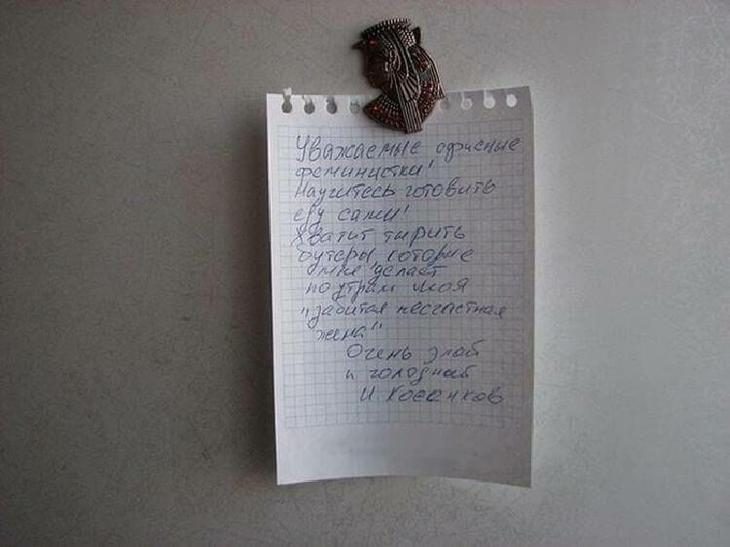 Уважаемые офисные
феминистки!
Научитесь готовить
еду сами!
Хватит тырить
бутеры которые
мне делает
по утрам моя
"забитая несчастная
жена"
Очень злой
и голодный
И Косенков